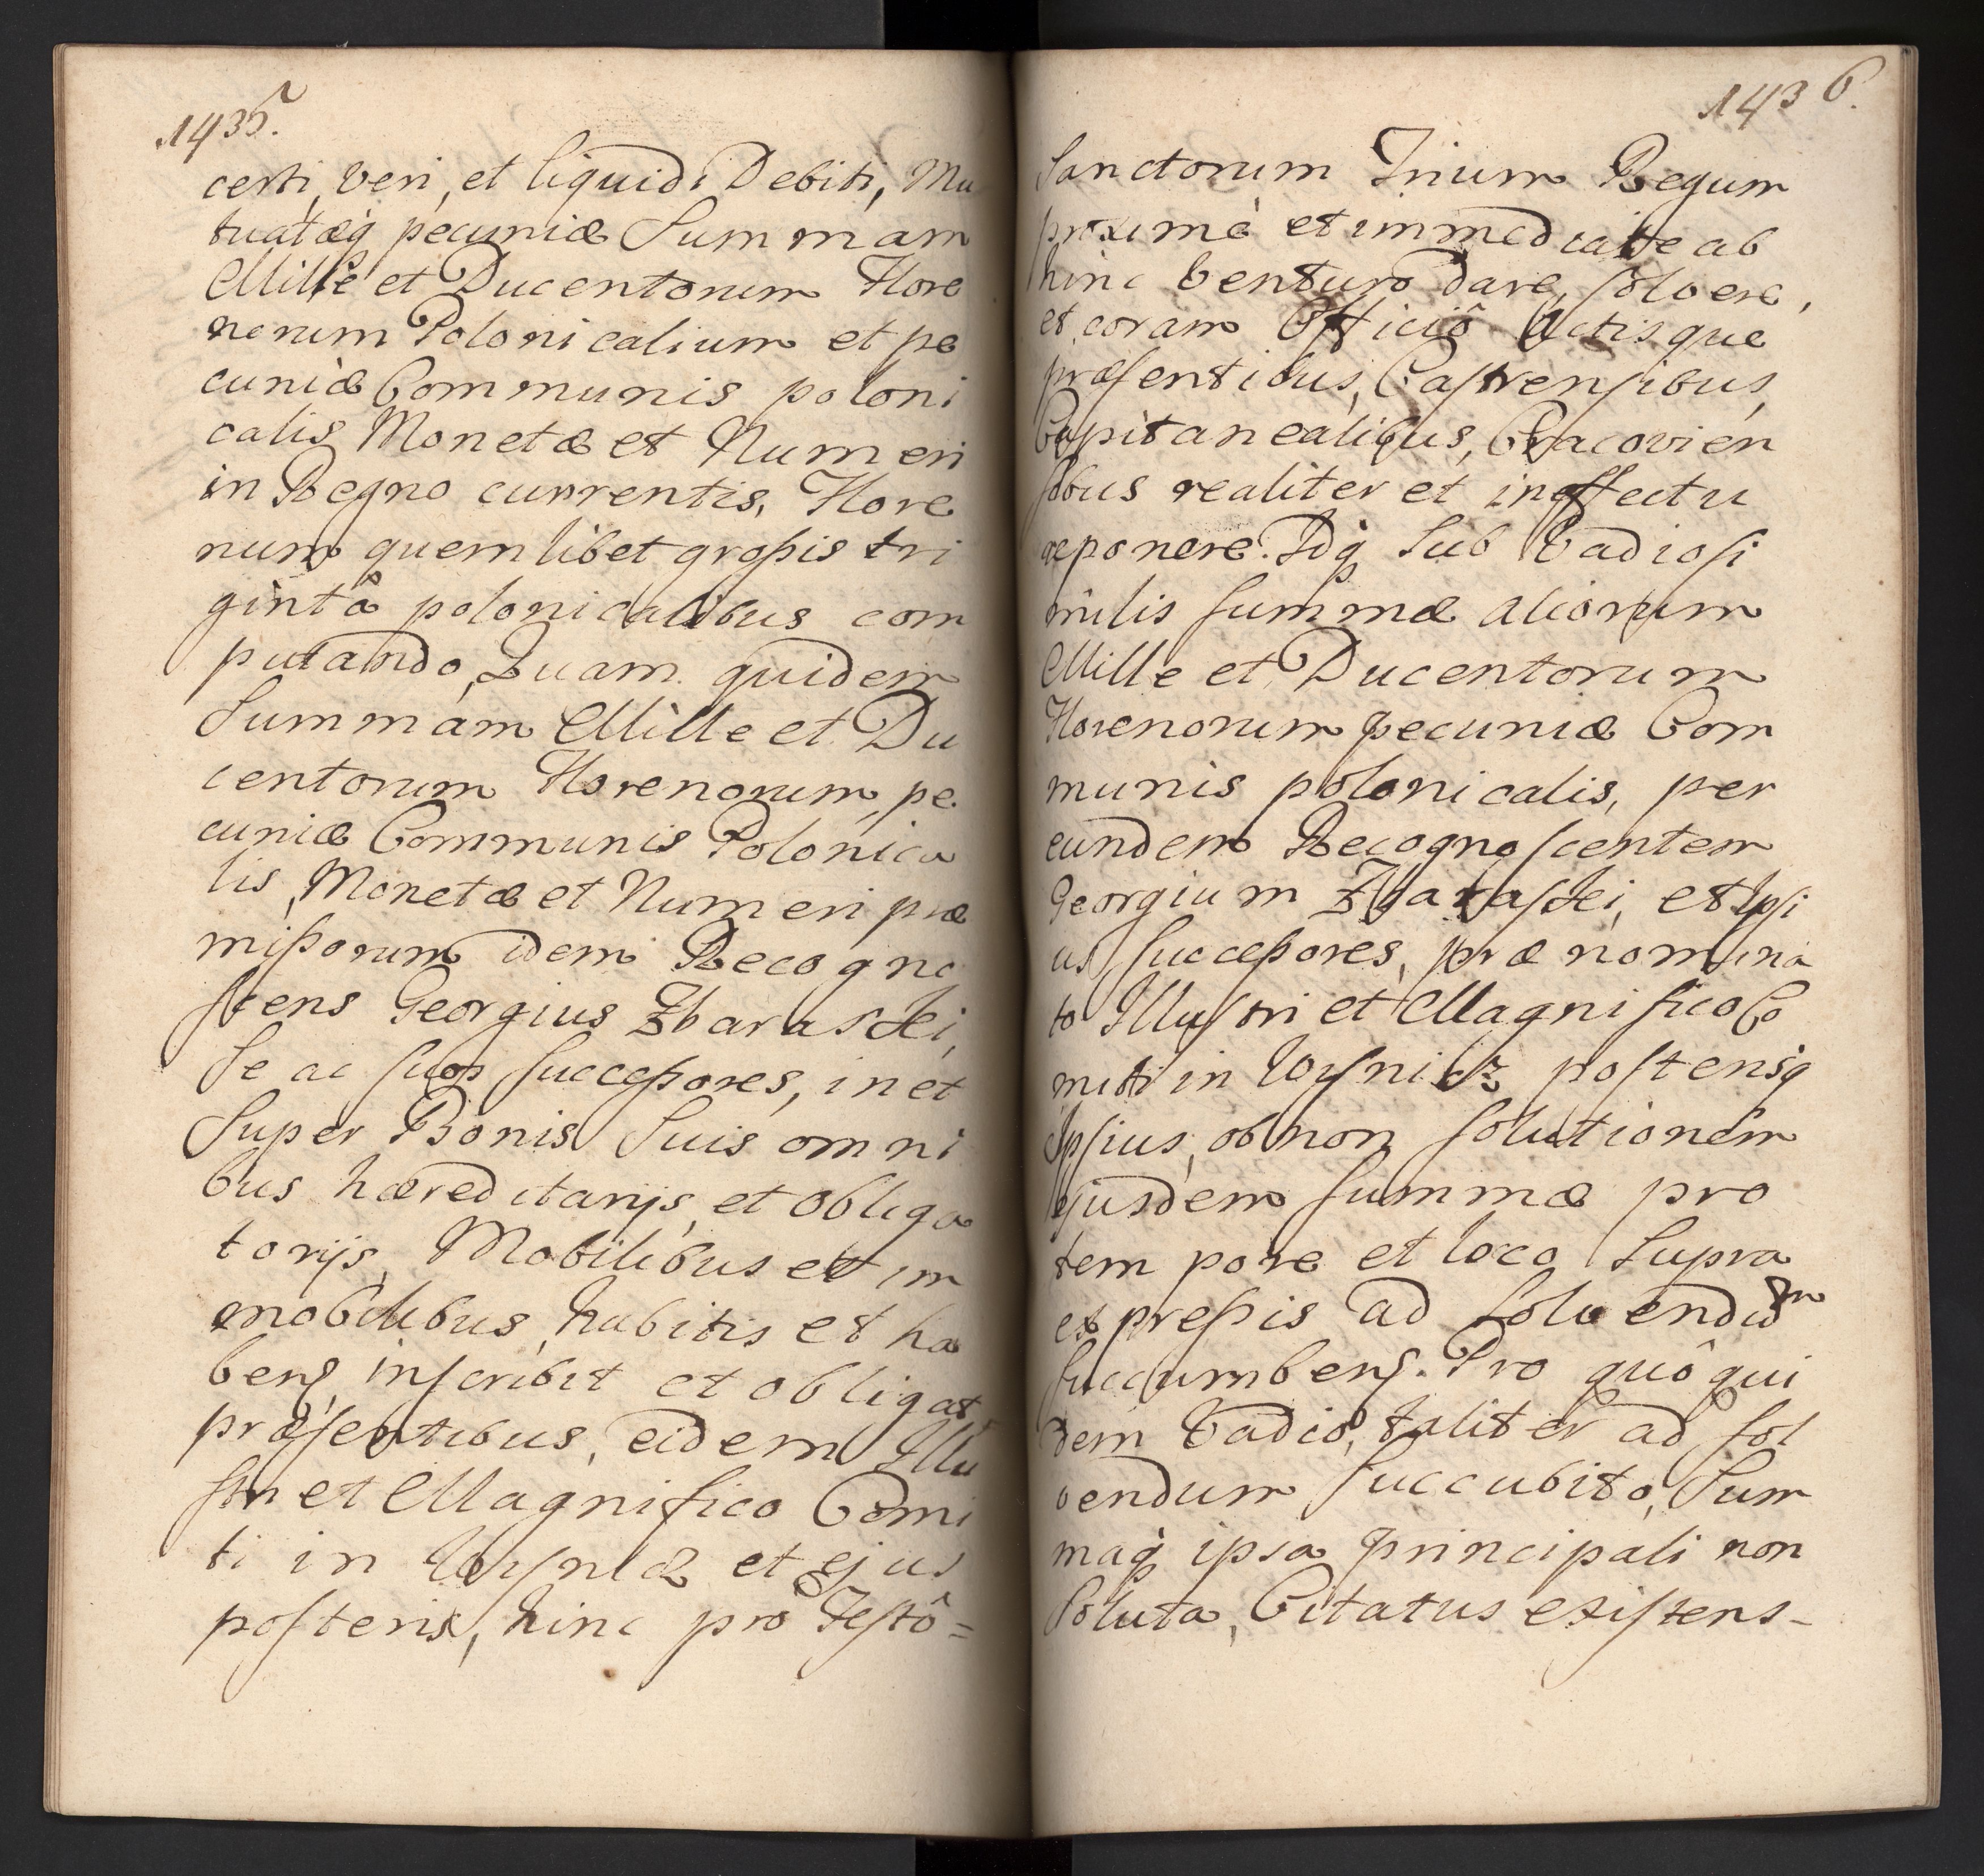 1435.
certi, veri, et liquidi Debiti, Mu
tuatæq; pecuniæ Summam
Mille et Ducentorum Flore
norum Polonicalium et pe
cuniæ Communis poloni
calis Monetæ et Numeri
in Regno currentis, Flore
num quemlibet grossis tri
gintâ polonicalibus com
putando, Quam quidem
Summam Mille et Du
centorum Florenorum, pe
cuniæ Communis Polonica
lis, Monetæ et Numeri præ
missorum idem Recogno
scens Georgius Zbaraski,
Se ac suos successores, in et
Super Bonis Suis omni
bus hæreditarijs, et obliga
torijs, Mobilibus et im
mobilibus, habitis et ha
bens, inscribit et obligat
præsentibus, eidem Illu
stri et Magnifico Comi
ti in Wisnicz et ejus
posteris, hinc pro Festô=
1436.
Sanctorum Trium Regum
proximè et immediate ab
hinc venturo dare, solvere,
et coram Officiô Actisque
præsentibus, Castrensibus,
Capitanealibus, Cracovien
sibus realiter et in effectu
reponere. Idq; Sub Vadio si
milis summæ aliorum
Mille et Ducentorum
Florenorum pecuniæ Com
munis polonicalis, per
eundem Recognoscentem
Georgium Zbaraski, et Ipsi
us successores, prænomina
to Illustri et Magnifico Co
miti in Wisnicz posterisq;
Ipsius, ob non solutionem
ejusdem summæ pro
tempore et loco Supra
expressis ad Solvendum
succumbens. Pro quô qui
dem Vadio, taliter ad sol
vendum succubito, Sum
maq; ipsa principali non
Soluta, Citatus existens-